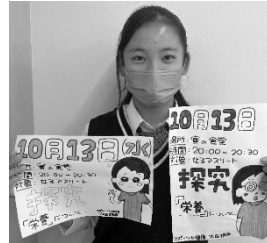 10月13日(水)
場所:寮の食堂
時間:20:00~20:30
対象:女子アスリート
探究
「栄養」について
10月13日
場所:寮の食堂
時間:20:00~20:30
対象:女子アスリート
探究
「栄養」